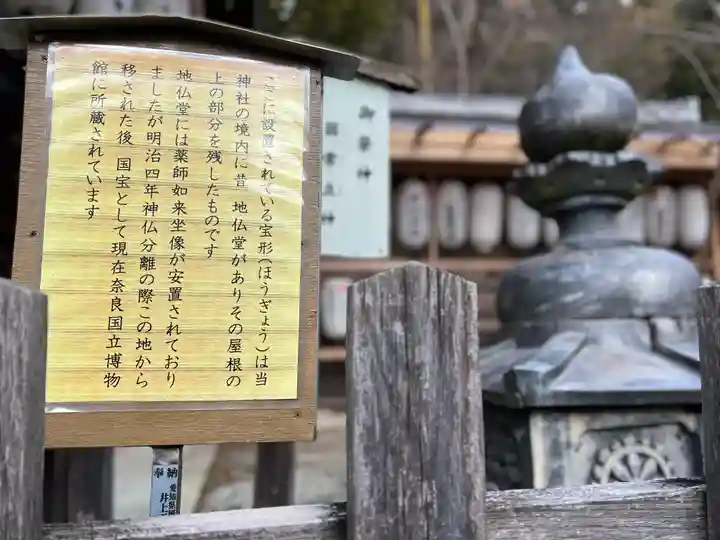 ここに設置されている宝形(ほうぎょう)は当
神社の境内に昔 地仏堂がありその屋根の
上の部分を残したものです
地仏堂には薬師如来坐像が安置されており
ましたが明治四年神仏分離の際この地から
移された後 国宝として現在奈良国立博物
館に所蔵されています
御祭神
国常立神
奉納
愛媛県
井上